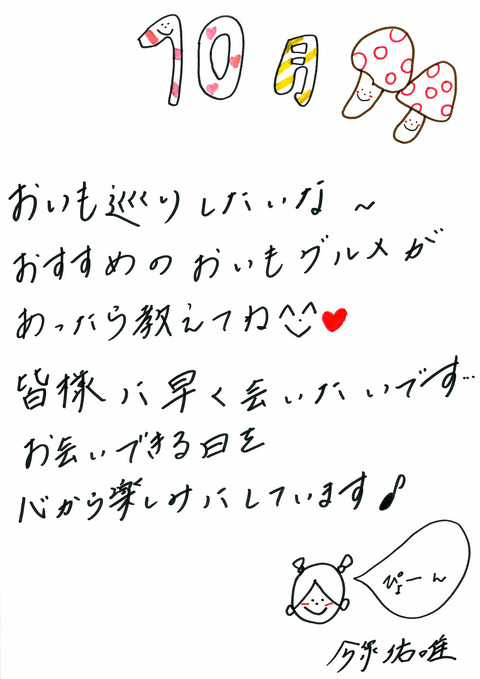 10月
おいも巡りしたいな〜
おすすめのおいもグルメが
あったら教えてね
皆様に早く会いたいです…
お会いできる日を
心から楽しみにしています♪
ぴょーん
今泉佑唯